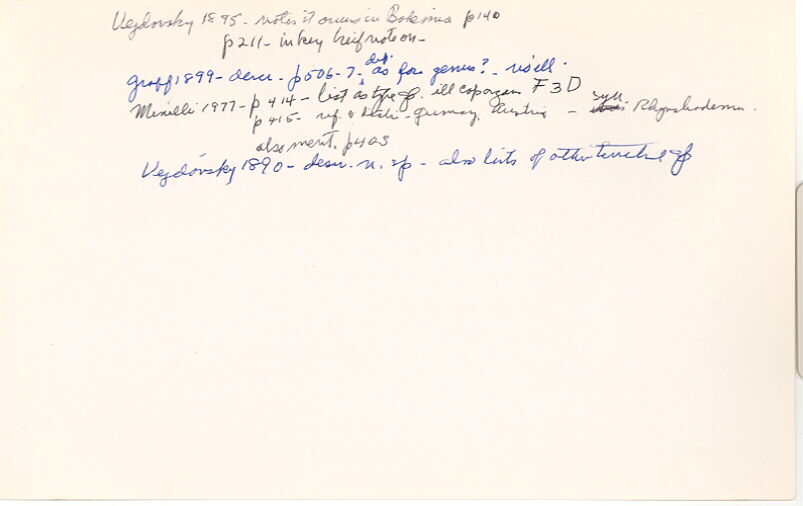 Vejdovsky 1895 - notes it occurs in Bohemia p140
p211 - in key brief note on -
def.
Graff 1899 - descr. - p506-7 - as for genus? - no ill.
Minelli 1977 - p414 - list as type sp. ill cop organ F3D
p415 - ref. & distr - Germany, Austria - syn Rhynchodemus.
also ment. p403
Vejdovsky 1890 - descr. n. sp - also lists of other terrestrial sp